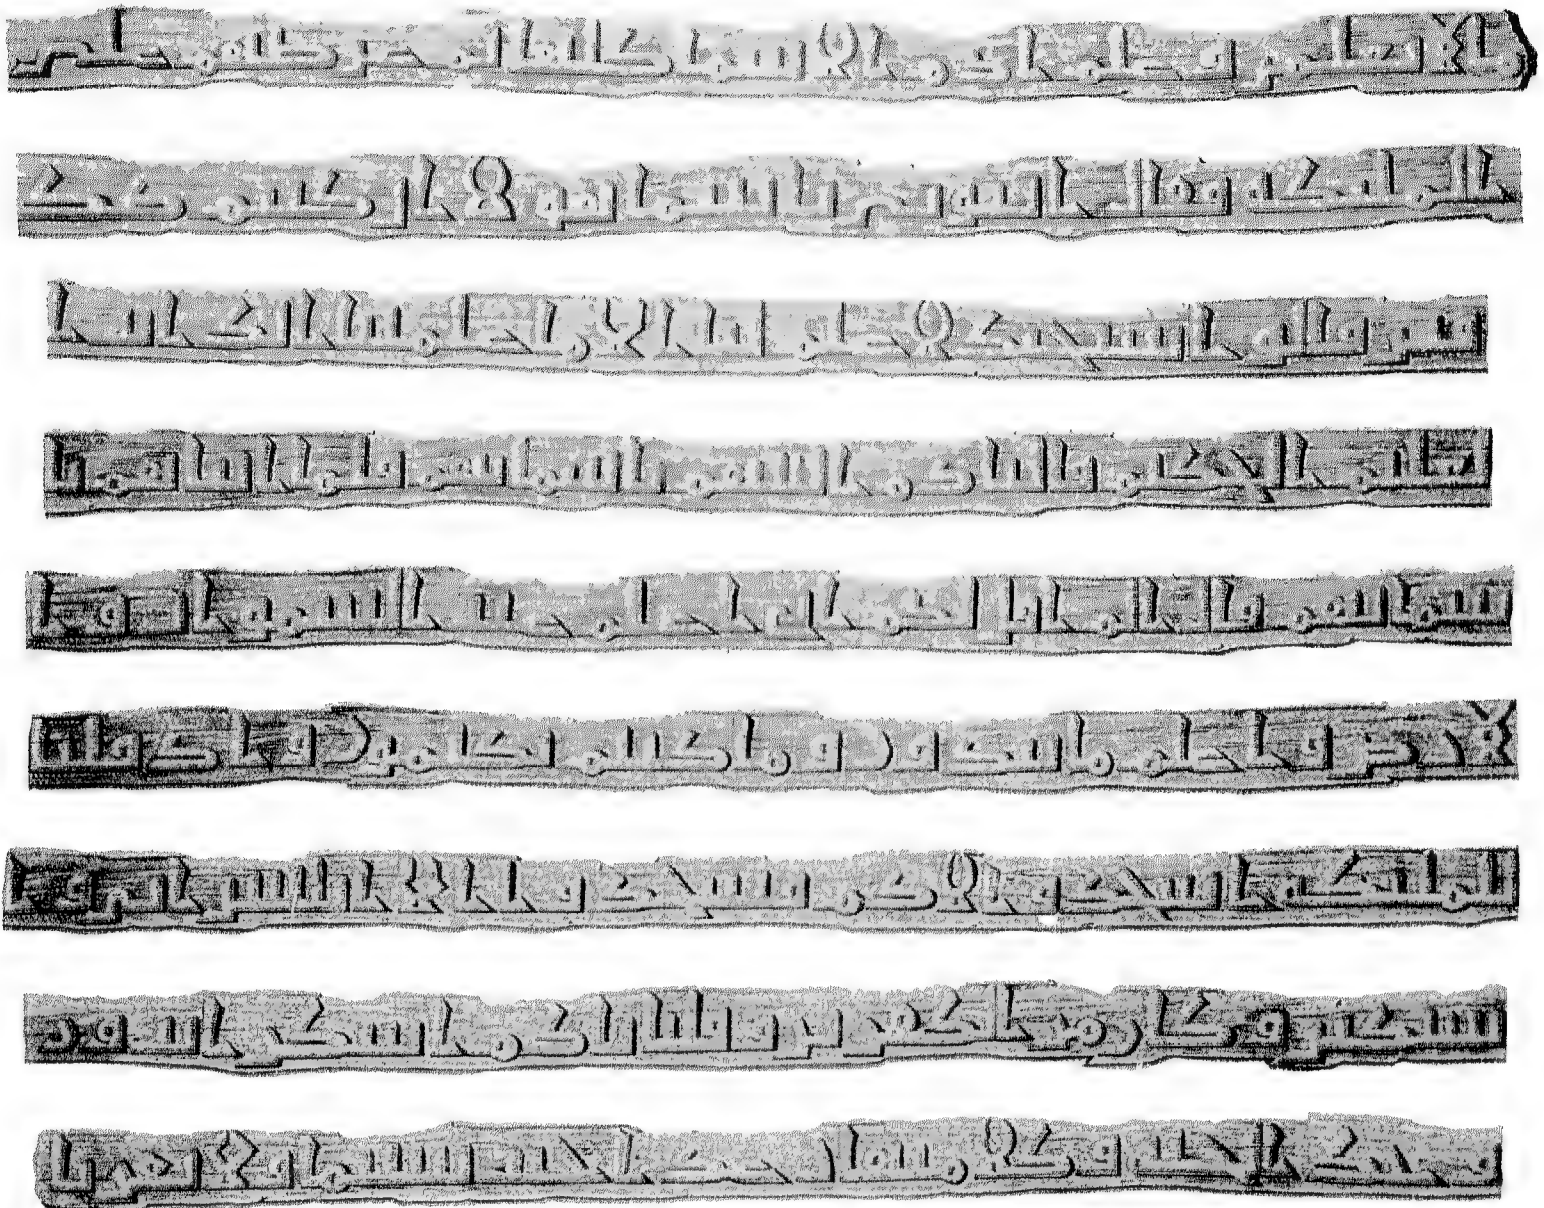 ما لا تعلمون وعلم ادم الاسما كلها ثم عرضهم على
الملئكة فقال انبئوني باسما هولا ان كنتم صد
قين قالوا سبحنك لا علم لنا الا ما علمتنا انك انت ا
لعليم الحكيم قال يادم انبئهم باسمائهم فلما انباهم با
سمائهم قال الم اقل لكم اني اعلم غيب السموت وا
لارض واعلم ما تبدون وما كنتم تكتمون واذ قلنا
للملئكة اسجدوا لادم فسجدوا الا ابليس ابى وا
ستكبر وكان من الكفرين وقلنا يادم اسكن انت وز
وجك الجنة وكلا منها رغدا حيث شئتما ولا تقربا